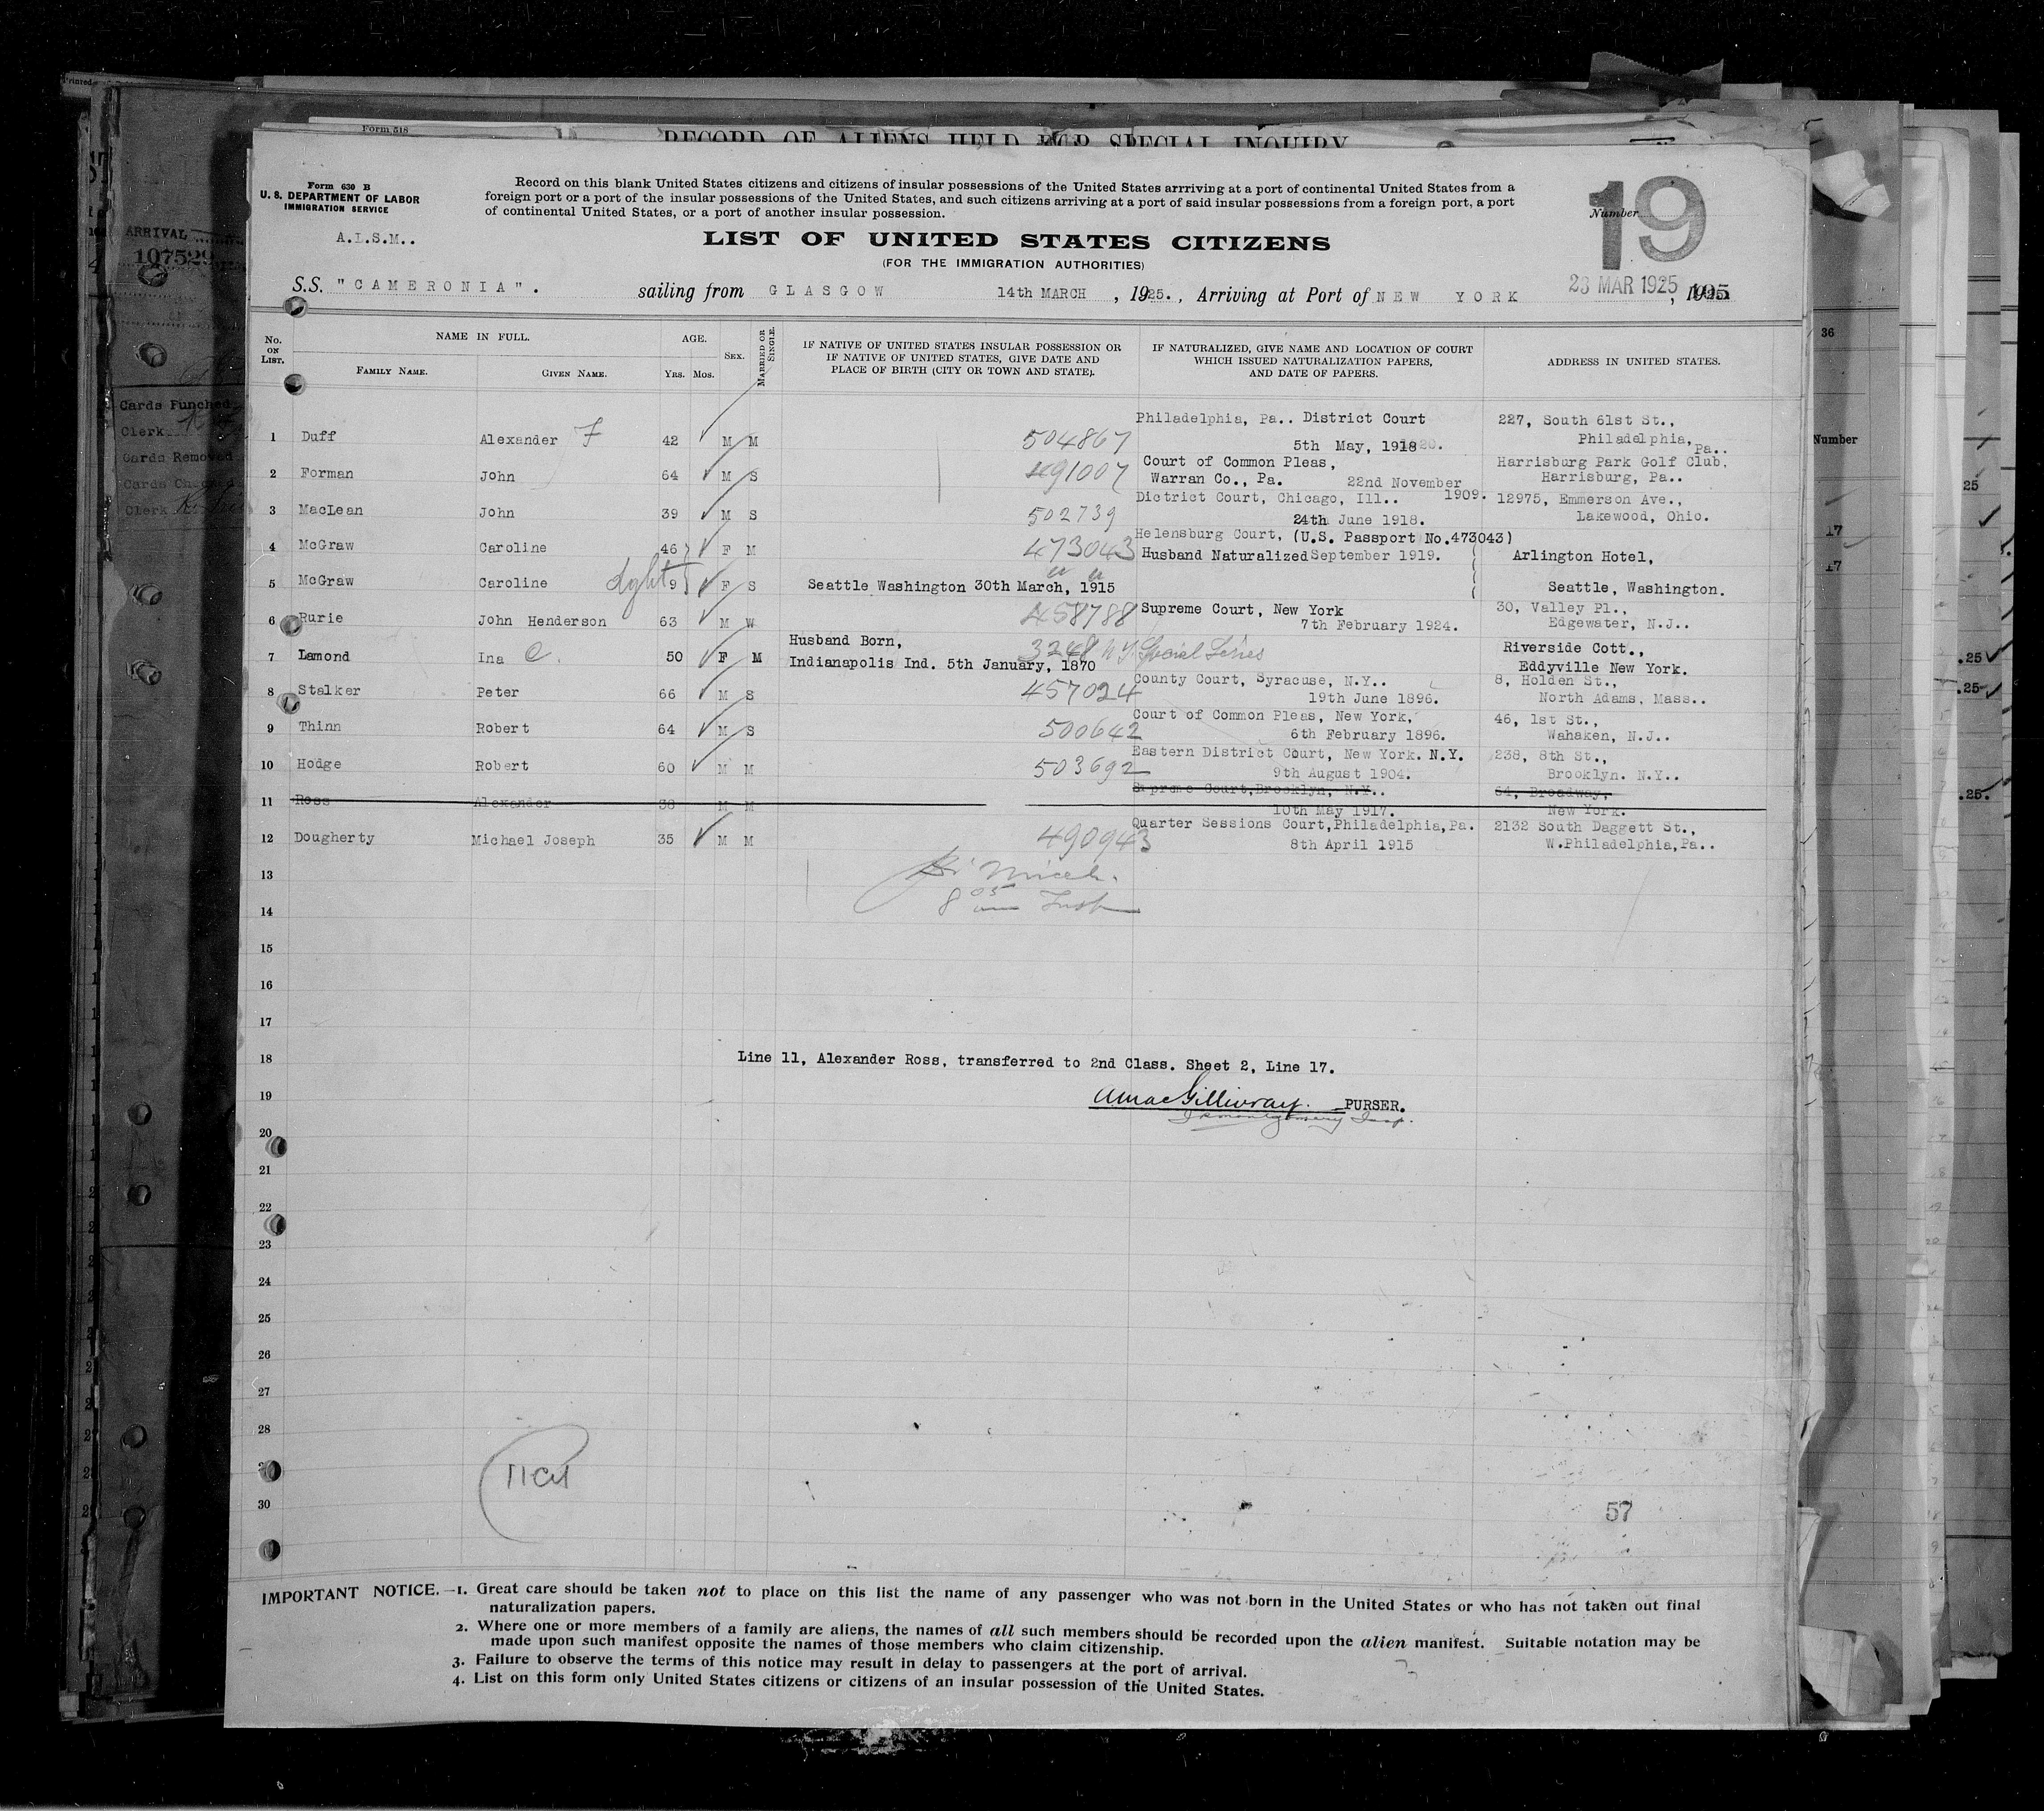 Form 518
RECORD OF ALIENS HELD FOR SPECIAL INQUIRY
Form 630 B
U. S. DEPARTMENT OF LABOR
IMMIGRATION SERVICE
A.L.S.M..
Record on this blank United States citizens and citizens of insular possessions of the United States arrriving at a port of continental United States from a
foreign port or a port of the insular possessions of the United States, and such citizens arriving at a port of said insular possessions from a foreign port, a port
of continental United States, or a port of another insular possession.
Number 19
LIST OF UNITED STATES CITIZENS
(FOR THE IMMIGRATION AUTHORITIES)
S.S. "CAMERONIA". sailing from GLASGOW 14th MARCH, 1925., Arriving at Port of NEW YORK 23 MAR 1925, 1925
No. ON LIST. NAME IN FULL. FAMILY NAME. GIVEN NAME. AGE. Yrs. Mos. SEX. MARRIED OR SINGLE. IF NATIVE OF UNITED STATES INSULAR POSSESSION OR IF NATIVE OF UNITED STATES, GIVE DATE AND PLACE OF BIRTH (CITY OR TOWN AND STATE). IF NATURALIZED, GIVE NAME AND LOCATION OF COURT WHICH ISSUED NATURALIZATION PAPERS, AND DATE OF PAPERS. ADDRESS IN UNITED STATES.
1 Duff Alexander F 42 M M 504867 Philadelphia, Pa.. District Court 5th May, 1918 227, South 61st St., Philadelphia, Pa..
2 Forman John 64 M S 491007 Court of Common Pleas, Warran Co., Pa. 22nd November 1909. Harrisburg Park Golf Club, Harrisburg, Pa..
3 MacLean John 39 M S 502739 District Court, Chicago, Ill.. 24th June 1918. 12975, Emmerson Ave., Lakewood, Ohio.
4 McGraw Caroline 46 F M 473043 Helensburg Court, (U.S. Passport No.473043) Husband Naturalized September 1919. Arlington Hotel,
5 McGraw Caroline dght 9 F S Seattle Washington 30th March, 1915 Seattle, Washington.
6 Rurie John Henderson 63 M W 458788 Supreme Court, New York 7th February 1924. 30, Valley Pl., Edgewater, N.J..
7 Lamond Ina C. 50 F M Husband Born, Indianapolis Ind. 5th January, 1870 3268 N.Y. Special Series Riverside Cott., Eddyville New York.
8 Stalker Peter 66 M S 457024 County Court, Syracuse, N.Y.. 19th June 1896. 8, Holden St., North Adams, Mass..
9 Thinn Robert 64 M S 500642 Court of Common Pleas, New York, 6th February 1896. 46, 1st St., Wahaken, N.J..
10 Hodge Robert 60 M M 503692 Eastern District Court, New York. N.Y. 9th August 1904. 238, 8th St., Brooklyn. N.Y..
11 Ross Alexander 38 M M Supreme Court, Brooklyn, N.Y.. 10th May 1917. 64, Broadway, New York.
12 Dougherty Michael Joseph 35 M M 490943 Quarter Sessions Court, Philadelphia, Pa. 8th April 1915 2132 South Daggett St., W.Philadelphia, Pa..
13
14
15
16
17
18 Line 11, Alexander Ross, transferred to 2nd Class. Sheet 2, Line 17.
19 A MacGillivray. PURSER.
20
21
22
23
24
25
26
27
28
30
57
IMPORTANT NOTICE.—1. Great care should be taken not to place on this list the name of any passenger who was not born in the United States or who has not taken out final
naturalization papers.
2. Where one or more members of a family are aliens, the names of all such members should be recorded upon the alien manifest. Suitable notation may be
made upon such manifest opposite the names of those members who claim citizenship.
3. Failure to observe the terms of this notice may result in delay to passengers at the port of arrival.
4. List on this form only United States citizens or citizens of an insular possession of the United States.
ARRIVAL
107529
Cards Punched
Clerk
Cards Removed
Clerk
36
Number
25
17
17
.25
.25
.25.